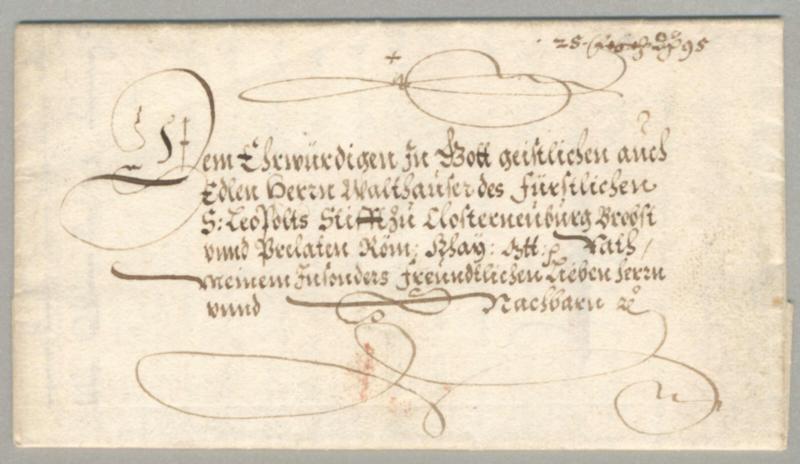 25 95
Dem Ehrwürdigen In Gott geistlichen auch
Edlen Herrn Walthauser des fürstlichen
S: Leopolts Stifft zu Closterneuburg Brobst
vnnd Prelaten Röm: Khay: Mtt: p Rath /
Meinem Insonders freundtlichen Lieben herrn
vnnd Nachbarn